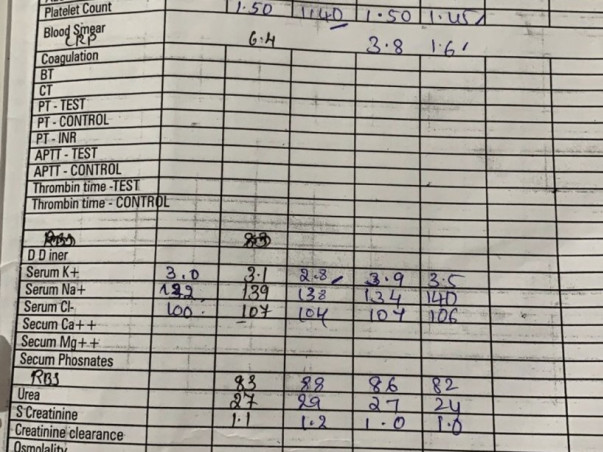 Platelet Count 1.50 1.40 1.50 1.45
Blood Smear
CRP 6.4 3.8 1.6
Coagulation
BT
CT
PT - TEST
PT - CONTROL
PT - INR
APTT - TEST
APTT - CONTROL
Thrombin time -TEST
Thrombin time - CONTROL
RBS
D D iner
Serum K+ 3.0 3.1 2.8 3.9 3.5
Serum Na+ 139 138 134 140
Serum Cl- 100 107 104 107 106
Secum Ca++
Secum Mg++
Secum Phosnates
RBS 83 88 86 82
Urea 27 29 27 24
S Creatinine 1.1 1.2 1.0 1.0
Creatinine clearance
Osmolality